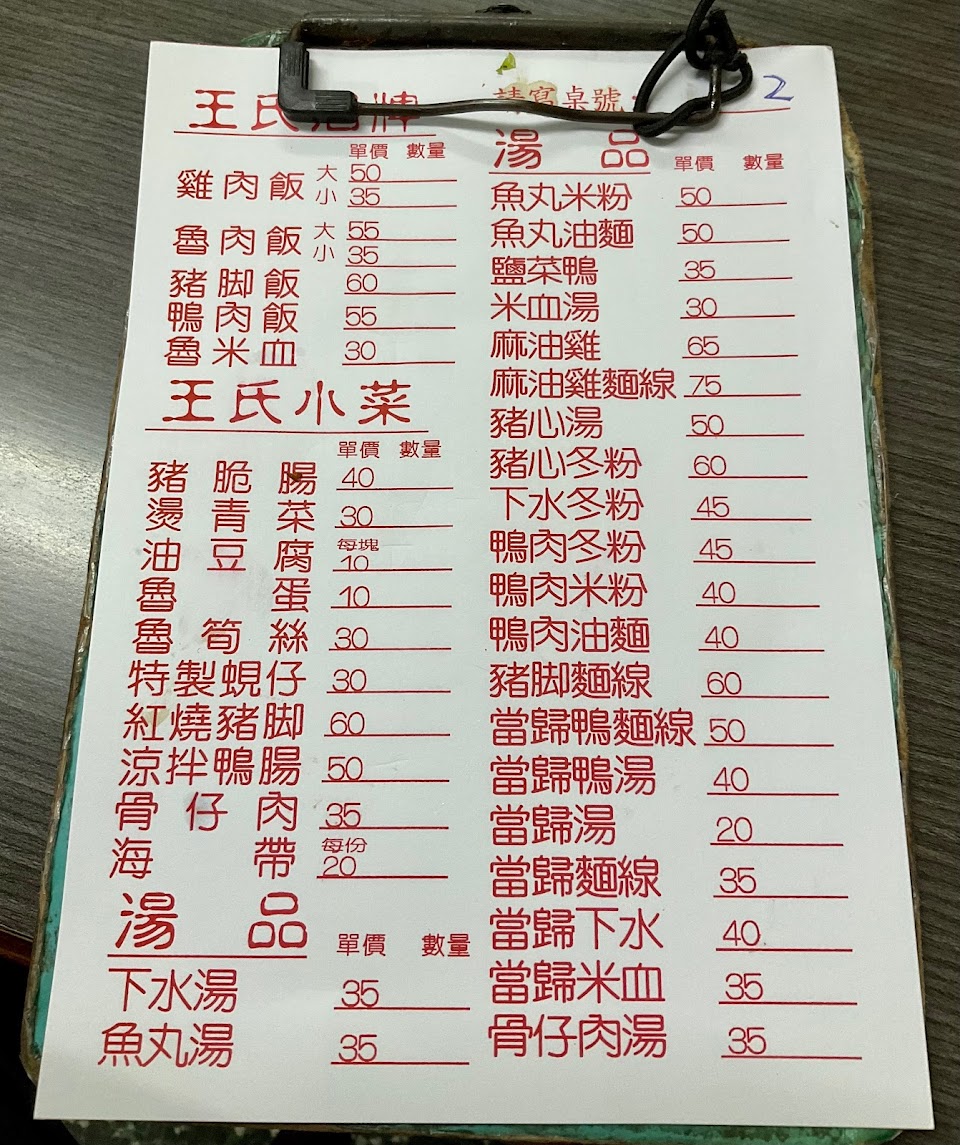 王氏招牌
單價 數量
雞肉飯 大 50
小 35
魯肉飯 大 55
小 35
豬脚飯 60
鴨肉飯 55
魯米血 30
王氏小菜
單價 數量
豬脆腸 40
燙青菜 30
油豆腐 每塊 10
魯蛋 10
魯筍絲 30
特製蜆仔 30
紅燒豬脚 60
涼拌鴨腸 50
骨仔肉 35
海帶 每份 20
湯品 單價 數量
下水湯 35
魚丸湯 35
請寫桌號: 2
湯品 單價 數量
魚丸米粉 50
魚丸油麵 50
鹽菜鴨 35
米血湯 30
麻油雞 65
麻油雞麵線 75
豬心湯 50
豬心冬粉 60
下水冬粉 45
鴨肉冬粉 45
鴨肉米粉 40
鴨肉油麵 40
豬脚麵線 60
當歸鴨麵線 50
當歸鴨湯 40
當歸湯 20
當歸麵線 35
當歸下水 40
當歸米血 35
骨仔肉湯 35